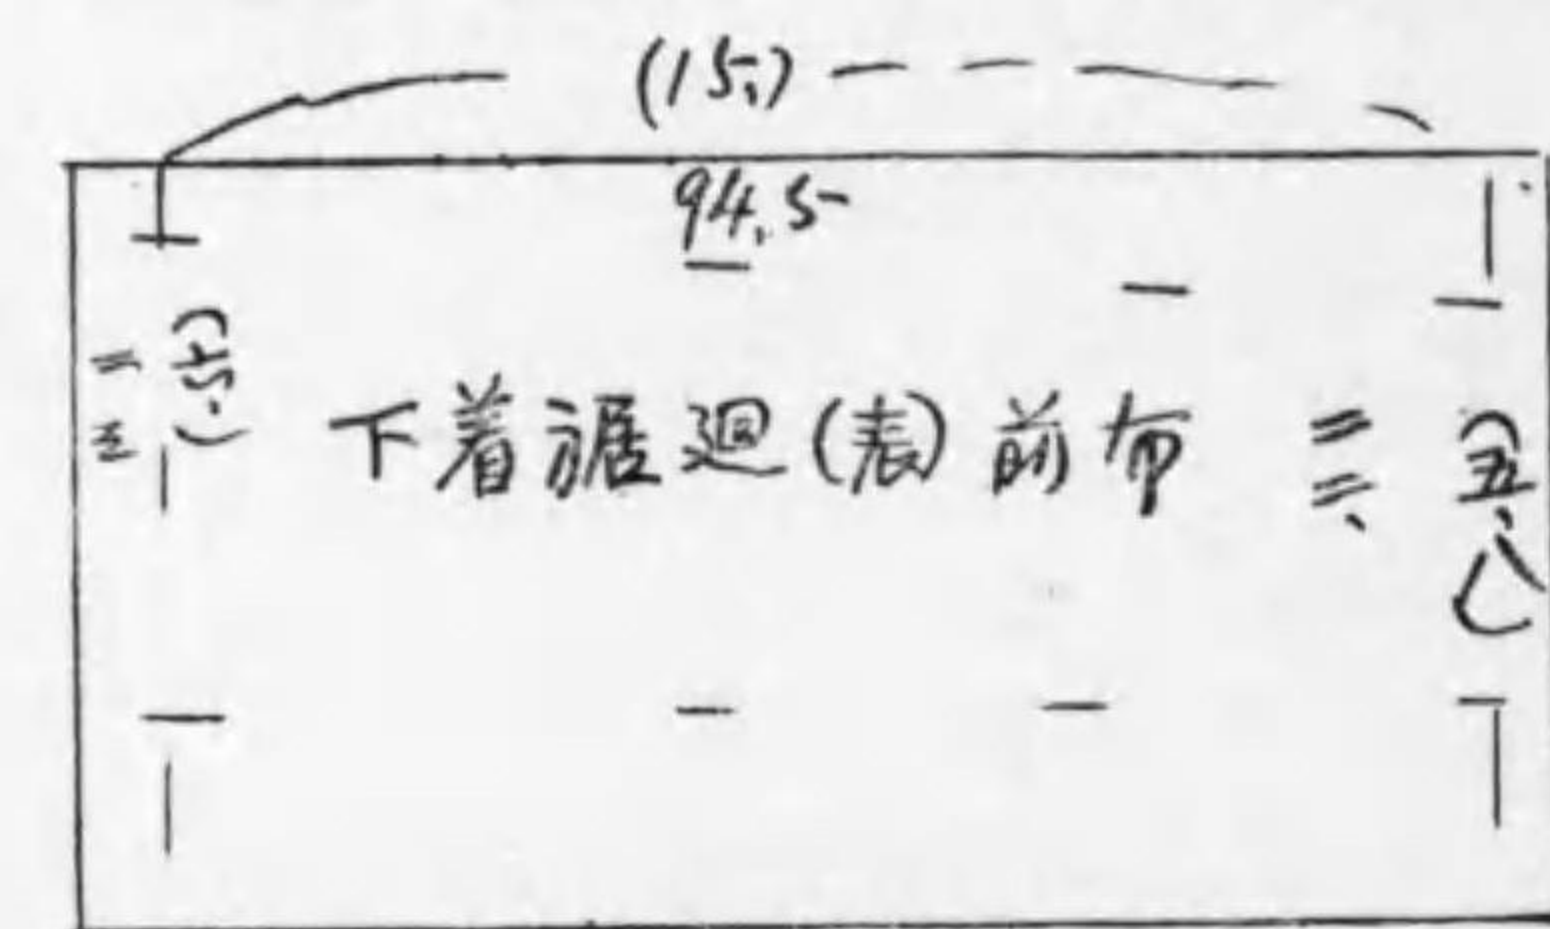 (15.)
94.5
二三
(六.)
下着裾廻(表)前布
二二、
(五、八)